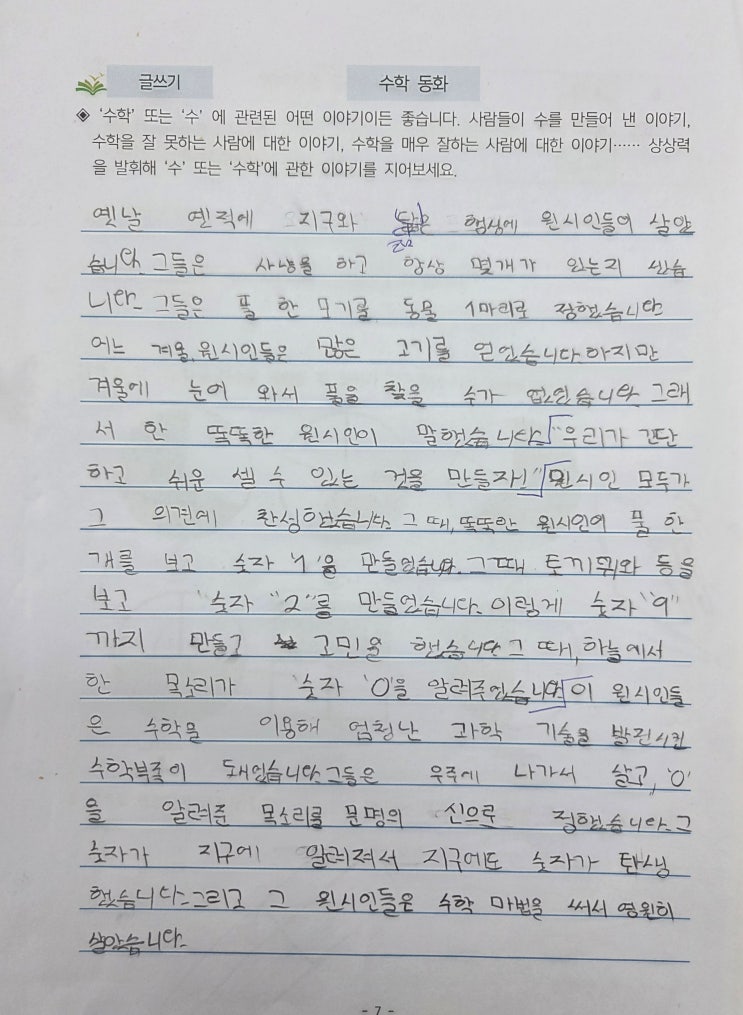 글쓰기 수학 동화
◈ '수학' 또는 '수' 에 관련된 어떤 이야기이든 좋습니다. 사람들이 수를 만들어 낸 이야기,
수학을 잘 못하는 사람에 대한 이야기, 수학을 매우 잘하는 사람에 대한 이야기…… 상상력
을 발휘해 '수' 또는 '수학'에 관한 이야기를 지어보세요.
옛날 옛적에 지구와 닮은 행성에 원시인들이 살았
습니다. 그들은 사냥을 하고 항상 몇개가 있는지 썼습
니다. 그들은 풀 한 모기를 동물 1마리로 정했습니다.
어느 겨울, 원시인들은 많은 고기를 얻었습니다. 하지만
겨울에 눈이 와서 풀을 찾을 수가 없었습니다. 그래
서 한 똑똑한 원시인이 말했습니다. "우리가 간단
하고 쉬운 셀 수 있는 것을 만들자!" 원시인 모두가
그 의견에 찬성했습니다. 그 때, 똑똑한 원시인이 풀 한
개를 보고 숫자 '1'을 만들었습니다. 그때 토끼 귀와 등을
보고 숫자 "2"를 만들었습니다. 이렇게 숫자 "9"
까지 만들고 고민을 했습니다. 그 때, 하늘에서
한 목소리가 숫자 '0'을 알려주었습니다. 이 원시인들
은 수학을 이용해 엄청난 과학 기술을 발전시킨
수학부족이 돼었습니다. 그들은 우주에 나가서 살고, '0'
을 알려준 목소리를 문명의 신으로 정했습니다. 그
숫자가 지구에 알려져서 지구에도 숫자가 탄생
했습니다. 그리고 그 원시인들은 수학 마법을 써서 영원히
살았습니다.
- 7 -